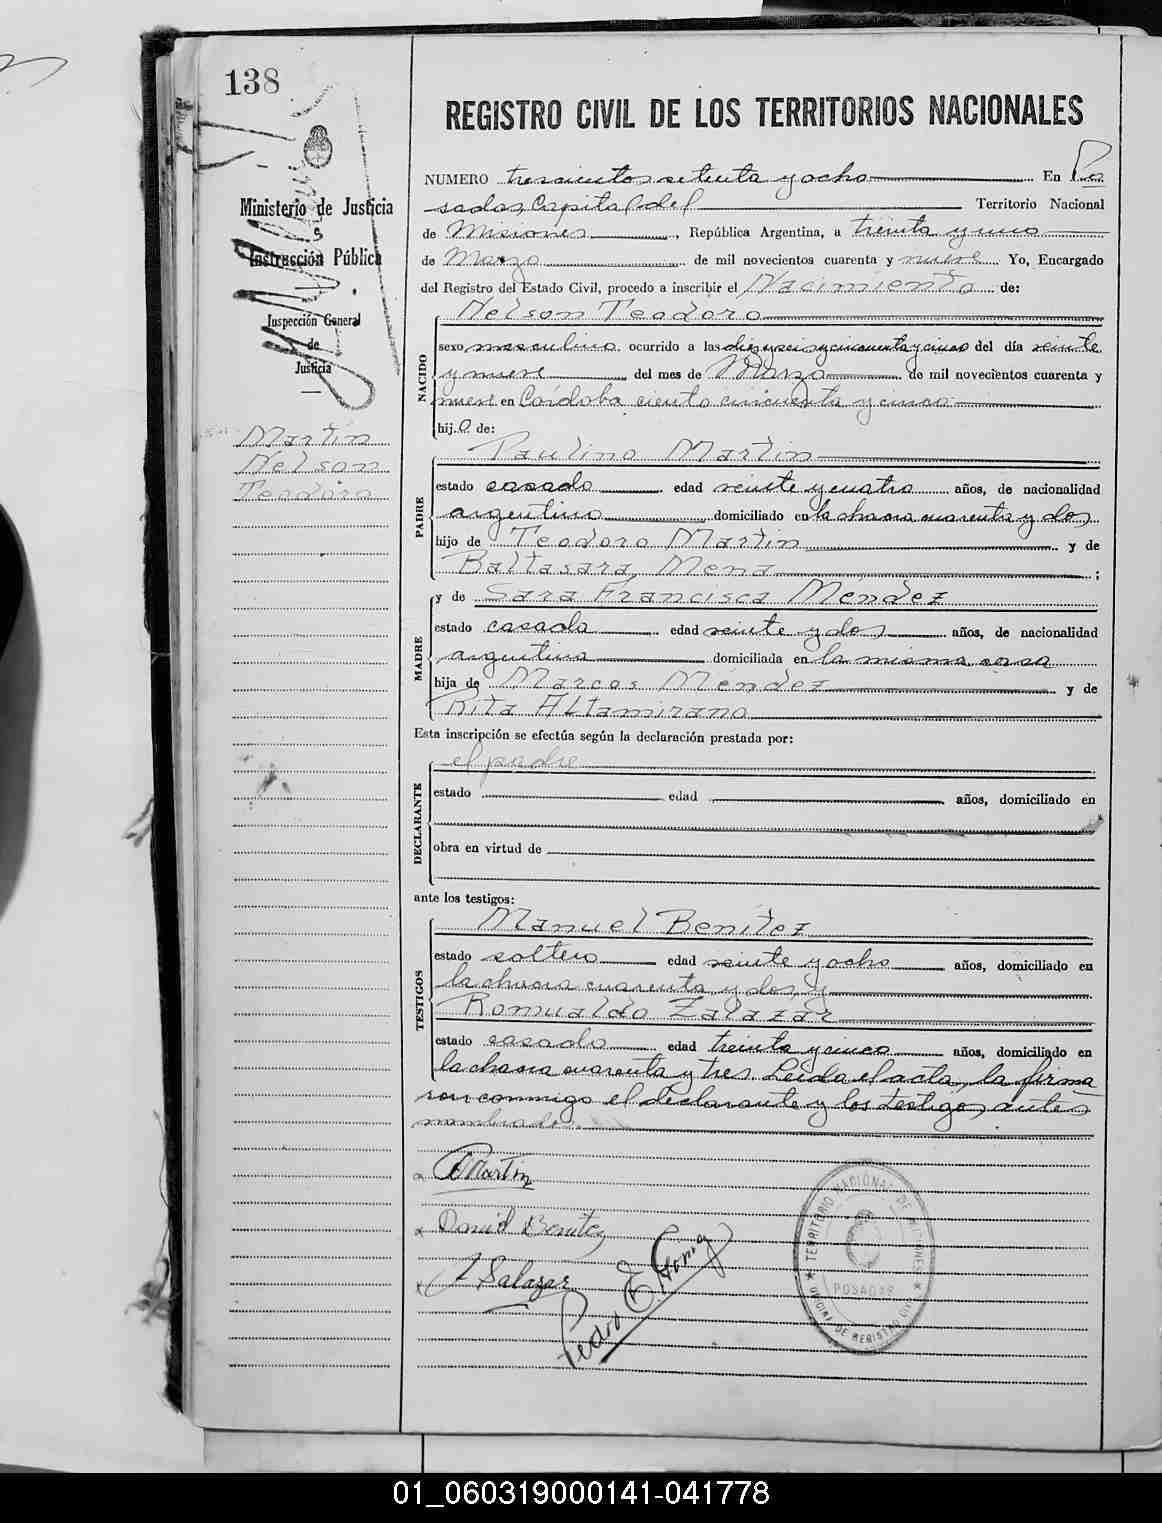 138
REGISTRO CIVIL DE LOS TERRITORIOS NACIONALES
Ministerio de Justicia
e
Instrucción Pública
Inspección General
de
Justicia
Martin
Nelson
Teodoro
NUMERO trescientos setenta y ocho En Po
sadas, Capital del Territorio Nacional
de Misiones, República Argentina, a treinta y uno
de Marzo de mil novecientos cuarenta y nueve Yo, Encargado
del Registro del Estado Civil, procedo a inscribir el Nacimiento de:
NACIDO
Nelson Teodoro
sexo masculino ocurrido a las diez y seis y cincuenta y cinco del día veinte
y nueve del mes de Marzo de mil novecientos cuarenta y
nueve en Córdoba ciento cincuenta y cinco
hijo de:
PADRE
Paulino Martin
estado casado edad veinte y cuatro años, de nacionalidad
argentino domiciliado en la chacra cuarenta y dos
hijo de Teodoro Martin y de
Baltasara Mena ;
MADRE
y de Sara Francisca Méndez
estado casada edad veinte y dos años, de nacionalidad
argentina domiciliada en la misma casa
hija de Marcos Méndez y de
Rita Altamirano
Esta inscripción se efectúa según la declaración prestada por:
DECLARANTE
el padre
estado edad años, domiciliado en
obra en virtud de
ante los testigos:
TESTIGOS
Manuel Benítez
estado soltero edad veinte y ocho años, domiciliado en
la chacra cuarenta y dos, y
Romualdo Zalazar
estado casado edad treinta y cinco años, domiciliado en
la chacra cuarenta y tres. Leída el acta, la firma
ron conmigo el declarante y los testigos antes
nombrados.
Martin
Benitez
Salazar
Pedro E
TERRITORIO NACIONAL DE MISIONES
POSADAS
OFICINA DE REGISTRO CIVIL
01_060319000141-041778